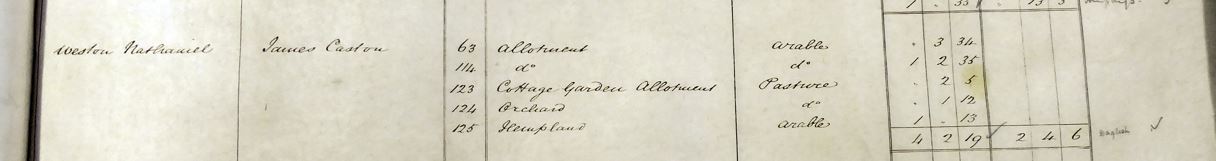 Weston Nathaniel James Caston 63 Allotment arable . 3 34
114 do do 1 2 35
123 Cottage Garden Allotment Pasture . 2 5
124 Orchard do . 1 12
125 Hempland arable 1 . 13
4 2 19 2 4 6